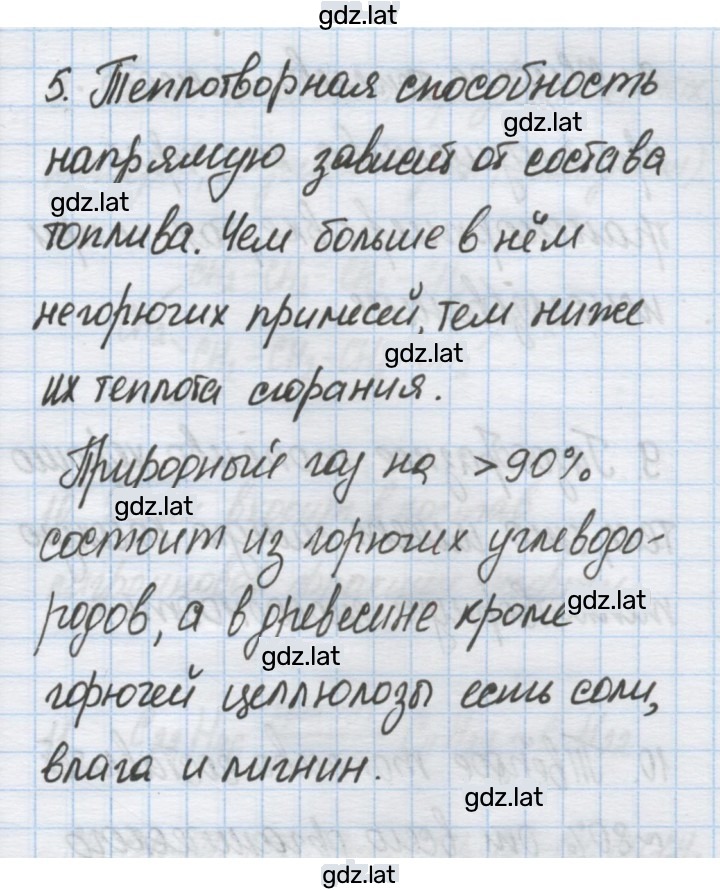 gdz.lat
5. Теплотворная способность
gdz.lat
напрямую зависит от состава
gdz.lat
топлива. Чем больше в нём
негорючих примесей, тем ниже
gdz.lat
их теплота сгорания.
Природный газ на >90%
gdz.lat
состоит из горючих углеводо-
gdz.lat
родов, а в древесине кроме
gdz.lat
горючей целлюлозы есть соли,
влага и лигнин.
gdz.lat
gdz.lat